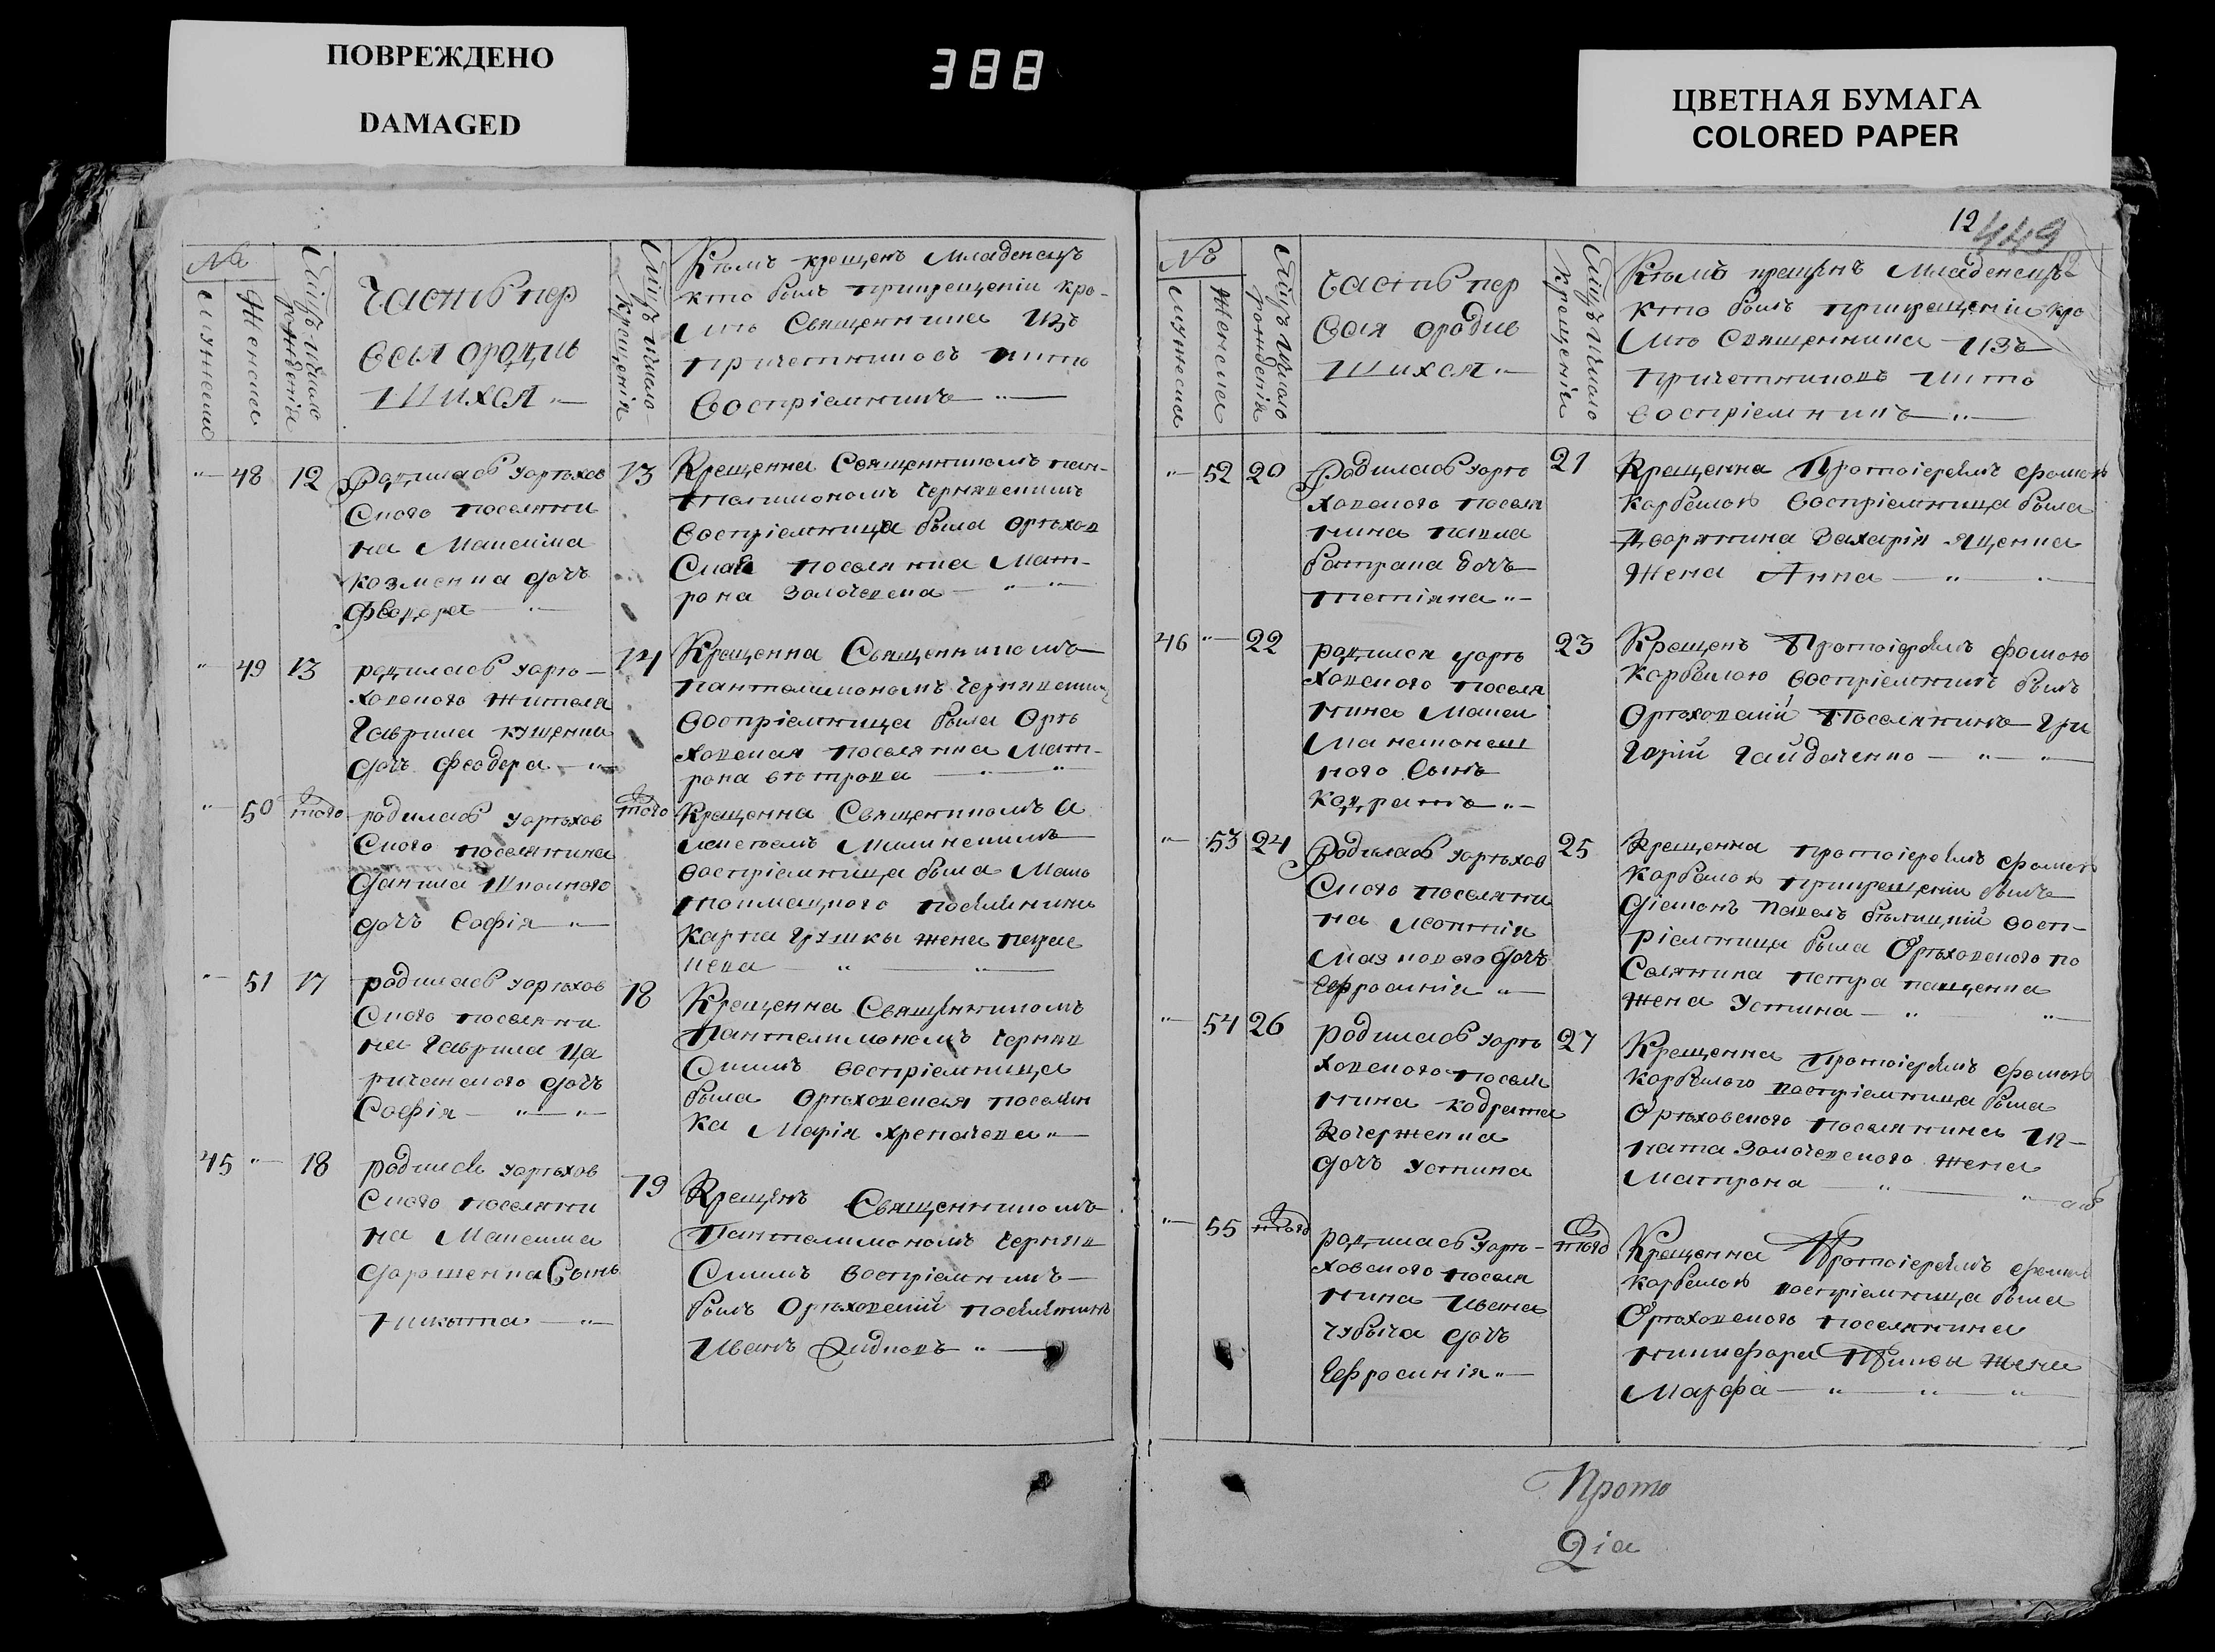 ПОВРЕЖДЕНО
DAMAGED
388
ЦВЕТНАЯ БУМАГА
COLORED PAPER
12
449
№
мужеска
женска
Мцъ и число рожденія
Часть пер
вая о родив
шихся
Мцъ и число крещенія
Кѣмъ крещенъ Младенецъ
кто былъ при крещеніи кро-
мѣ Священника изъ
причетниковъ и кто
Воспріемникъ
48 12
Родилась уорѣхов
Скаго поселяни
на Максима
козменка дочь
Феодора
13
Крещенна Священникомъ пан-
талимономъ Чернявскимъ
Воспріемница была орѣхов
Ская поселянка Мат-
рона Золочевска
49 13
родилась уорѣ-
ховскаго жителя
Гаврила куценка
дочь Феодора
14
Крещенна Священникомъ
Пантелимономъ Чернявским
Воспріемница была Орѣ
ховская поселянка Мат-
рона
50 того
родилась уорѣхов
Скаго поселянина
Данила Шполного
дочь Софія
того
Крещенна Священникомъ А
лексѣемъ Милинскимъ
воспріемница была Мало
токмацкого поселянина
карпа Грушки жена
51 17
родилась уорѣхов
Скаго поселяни
на Гаврила Ца
риченского дочь
Софія
18
Крещенна Священникомъ
Пантелимономъ Черняв
Скимъ воспріемница
была Орѣховская поселян
ка Марія Хрепачева
45 18
родился уорѣхов
Скаго поселяни
на Максима
дорошенка Сынъ
Никита
19
Крещенъ Священникомъ
Пантелимономъ Черняв
Скимъ воспріемникъ
былъ Орѣховскій поселянинъ
Иванъ
№
мужеска
женска
Мцъ и число рожденія
Часть пер
вая о родив
шихся
Мцъ и число крещеніи
Кѣмъ крещенъ Младенецъ
кто былъ при крещеніи кро
мѣ Священника изъ
причетниковъ и кто
воспріемникъ
52 20
Родилась уорѣ
ховского поселя
нина павла
Батрака дочь
Тетіяна
21
Крещенна Протоіереемъ фомою
Карбелою воспріемница была
Дворянина Захарія яценка
жена Анна
46 22
родился уорѣ
ховского поселя
нина Макси
ма
ного Сынъ
Кодратъ
23
Крещенъ Протоіереемъ фомою
Карбелою воспріемникъ былъ
Орѣховскій Поселянинъ Гри
горій Гайдаченко
53 24
Родилась уорѣхов
Скаго поселяни
на Леонтія
дочь
Ефросинія
25
Крещенна протоіереемъ фомою
Карбелою при крещеніи былъ
діаконъ Павелъ Бѣлицкій восп-
ріемница была Орѣховского по
Селянина петра пащенка
жена Устина
54 26
родилась уорѣ
ховского поселя
нина кодрата
Кочерженка
дочь Устина
27
Крещенна Протоіереемъ фомою
Карбелою воспріемница была
Орѣховского поселянина Иг-
ната Золочевского жена
Матрона
55 того
родилась уорѣ-
ховского поселя
нина Ивана
чубыча дочь
Ефросинія
того
Крещенна Протоіереемъ фомою
Карбелою воспріемница была
Орѣховского поселянина
никифора жена
Марфа
Прото
Діа